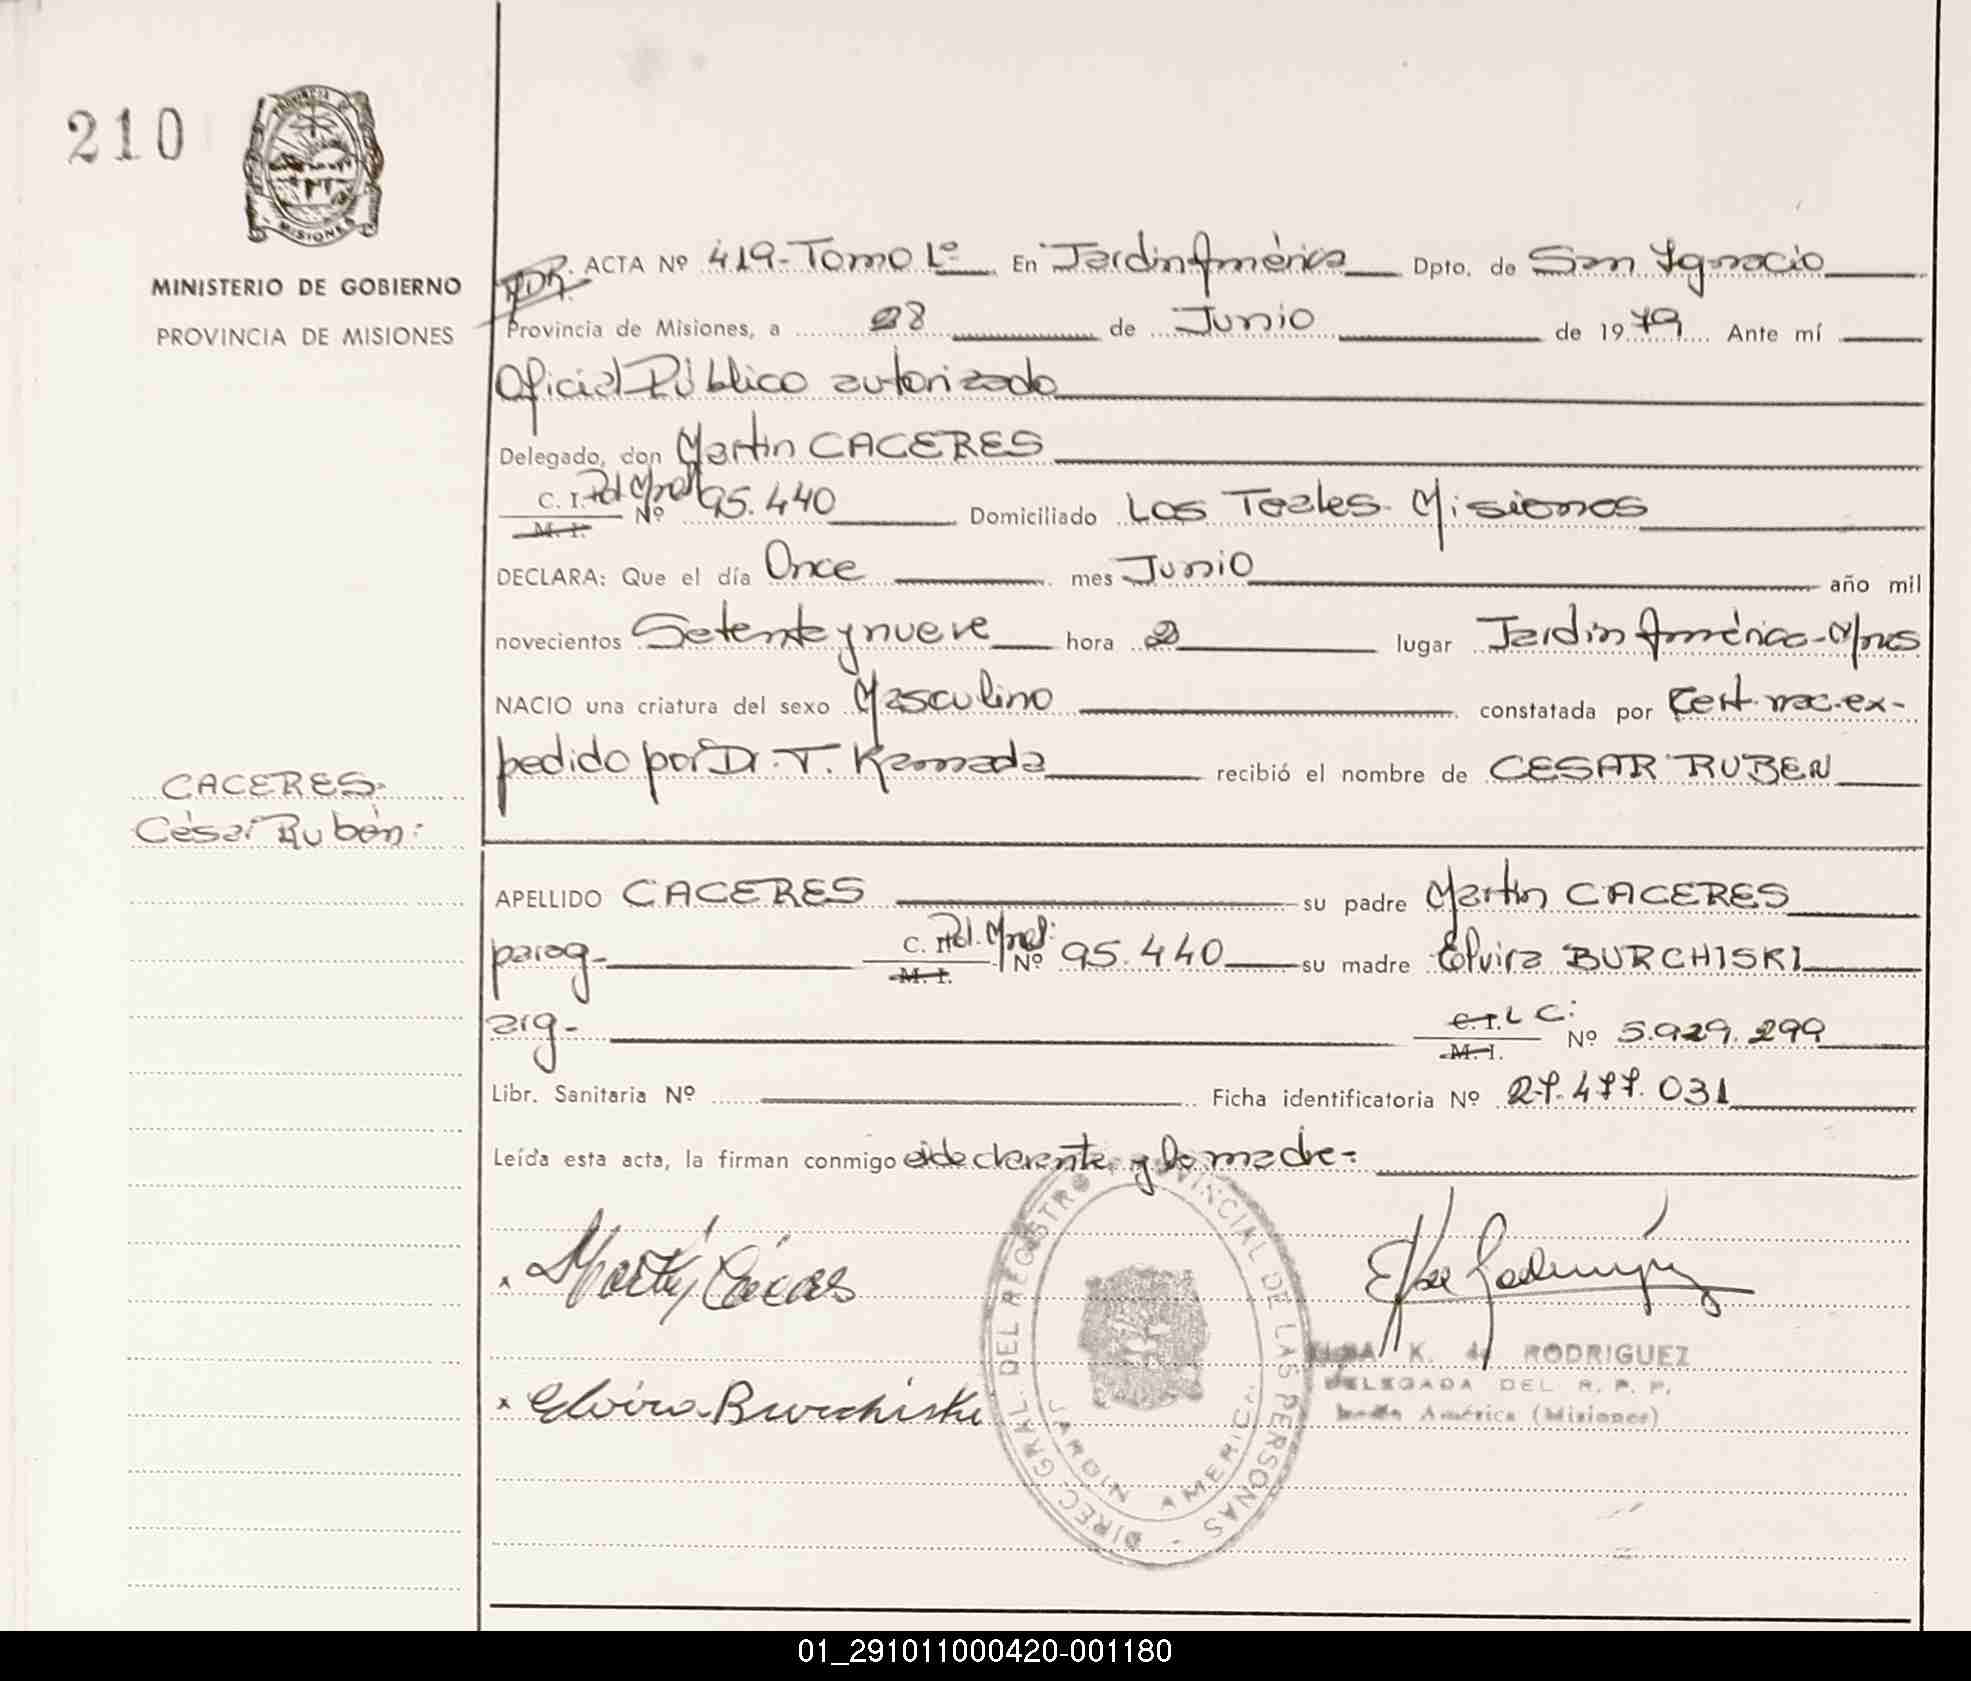 210
PROVINCIA DE
MISIONES
MINISTERIO DE GOBIERNO
PROVINCIA DE MISIONES
ACTA Nº 419-Tomo 1º En Jardín América Dpto. de San Ignacio
Provincia de Misiones, a 28 de Junio de 1979 Ante mí
Oficial Público autorizado
Delegado, don Martin CACERES
C. I. Pol Mnes
M. I. Nº 95.440 Domiciliado Los Teales Misiones
DECLARA: Que el día Once mes Junio año mil
novecientos Setenta y nueve hora 2 lugar Jardín América-Mnes
NACIO una criatura del sexo Masculino constatada por Cert. nac. ex-
pedido por Dr. T. Kamada recibió el nombre de CESAR RUBEN
CACERES
César Rubén:
APELLIDO CACERES su padre Martin CACERES
parag- C. I. Pol. Mnes:
M. I. Nº 95.440 su madre Elvira BURCHISKI
arg- C. I. L C:
M. I. Nº 5.929.299
Libr. Sanitaria Nº Ficha identificatoria Nº 27.477.031
Leída esta acta, la firman conmigo el declarante y la madre-
x Martin Cáceres
x Elvira Burchiski
DIREC. GRAL. DEL REGISTRO PROVINCIAL DE LAS PERSONAS -
JARDIN AMERICA
K. de RODRIGUEZ
DELEGADA DEL R. P. P.
América (Misiones)
01_291011000420-001180